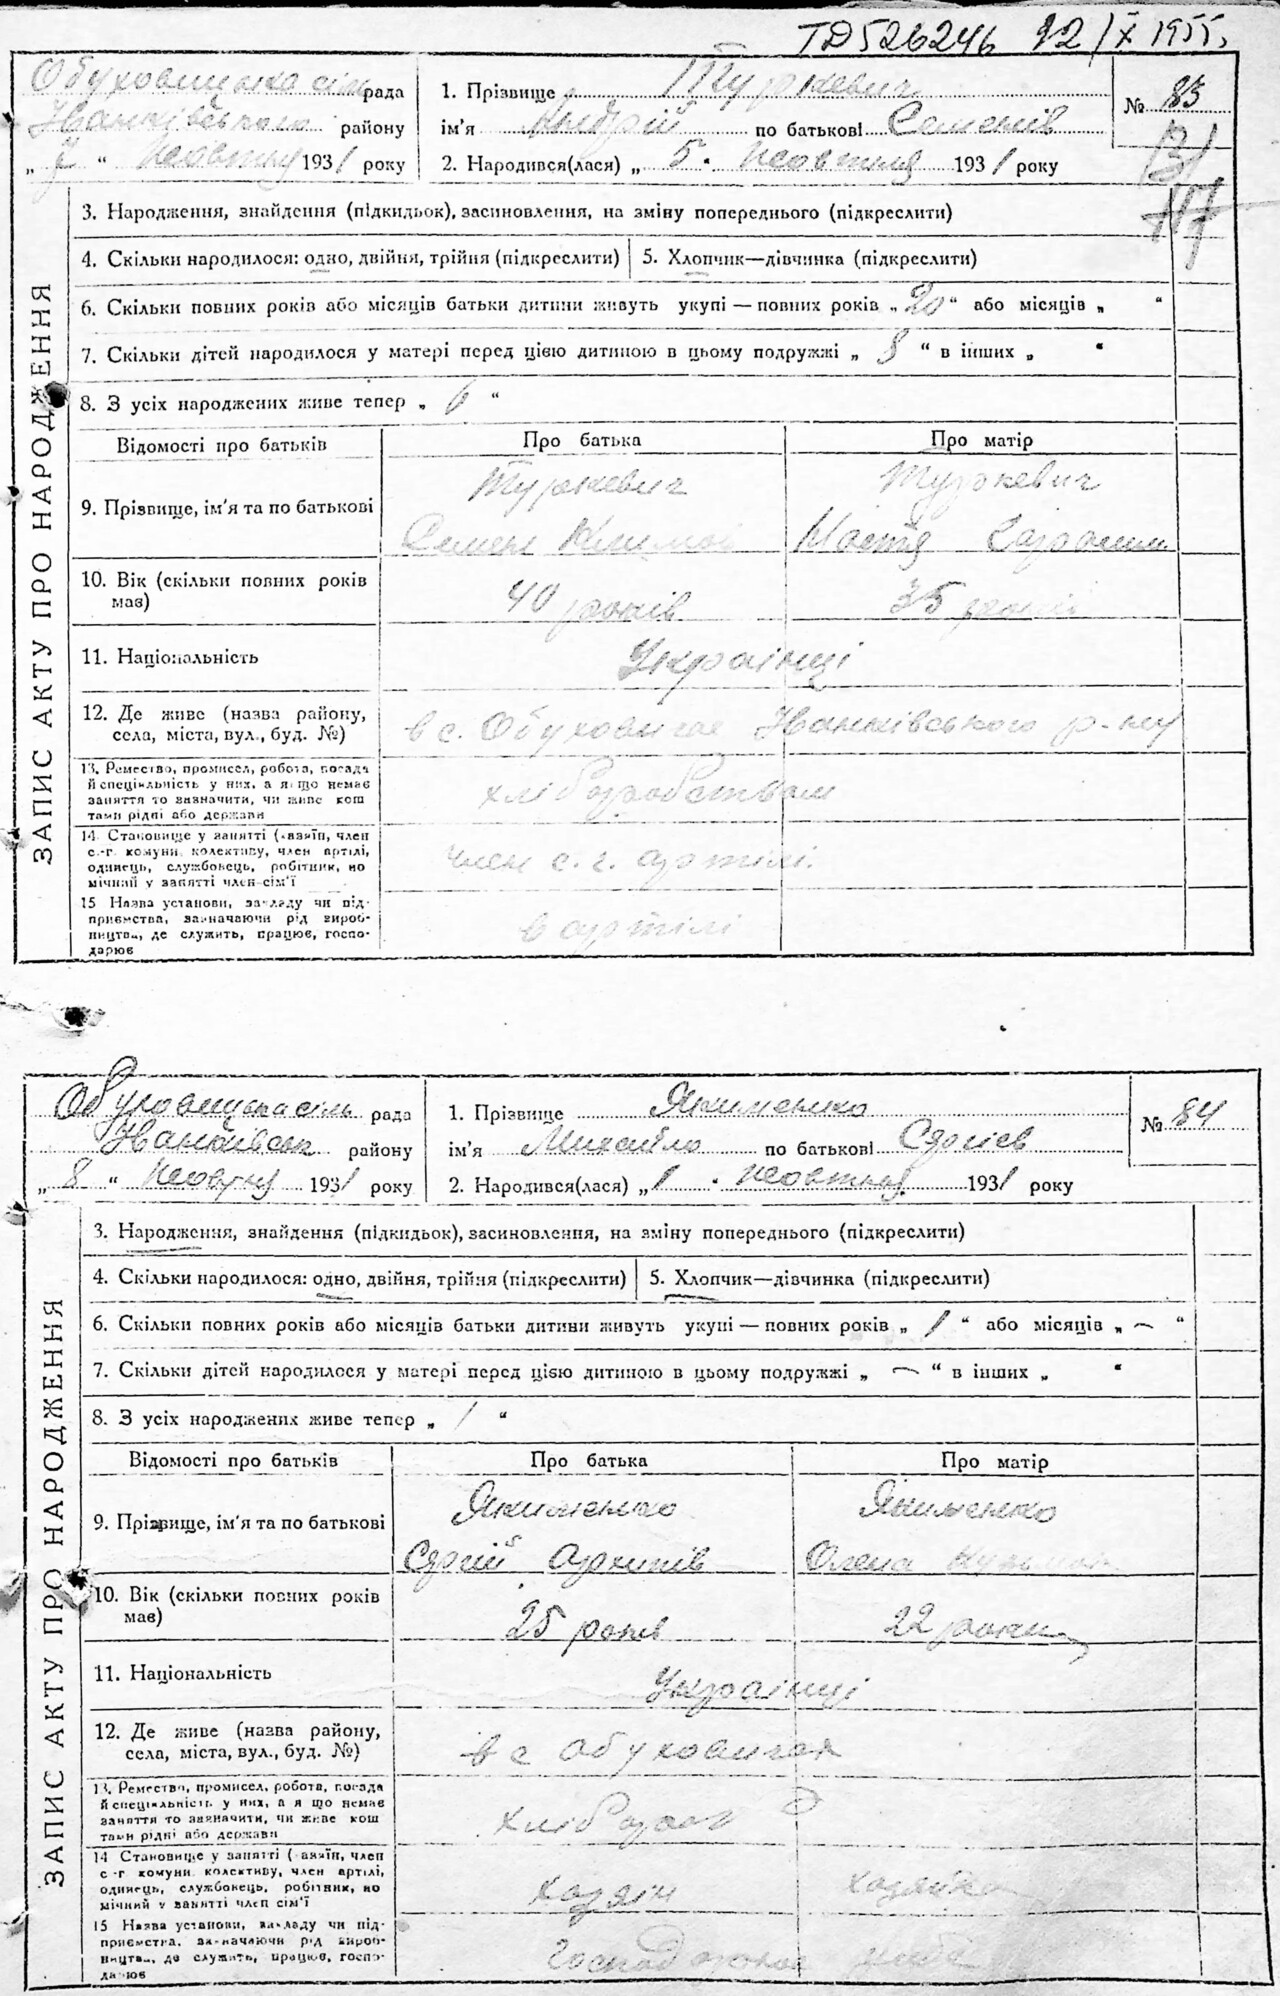 ТД526246 12/IX 1955.
Обуховицька сіль рада
Іванківського району
„7“ жовтня 1931 року
1. Прізвище Туркевич
ім'я Андрій по батькові Семенів
2. Народився(лася) „5“ жовтня 1931 року
№ 83
ЗАПИС АКТУ ПРО НАРОДЖЕННЯ
3. Народження, знайдення (підкидьок), засиновлення, на зміну попереднього (підкреслити)
4. Скільки народилося: одно, двійня, трійня (підкреслити) 5. Хлопчик—дівчинка (підкреслити)
6. Скільки повних років або місяців батьки дитини живуть укупі — повних років „20“ або місяців „ “
7. Скільки дітей народилося у матері перед цією дитиною в цьому подружжі „8“ в інших „ “
8. З усіх народжених живе тепер „6“
Відомості про батьків Про батька Про матір
9. Прізвище, ім'я та по батькові
Туркевич Туркевич
Семен Климов Настя
10. Вік (скільки повних років має)
40 років 35 років
11. Національність Українці
12. Де живе (назва району, села, міста, вул., буд. №)
в с. Обуховичах Іванківського р-ну
13. Ремество, промисел, робота, посада
й спеціяльність у них, а якщо немає
заняття то зазначити, чи живе кош
тами рідні або держави
хліборобством
14 Становище у занятті (хазяїн, член
с.-г. комуни, колективу, член артілі,
одинець, службовець, робітник, по
мічний у занятті член сім'ї
член с. г. артілі
15 Назва установи, закладу чи під-
приємства, зазначаючи рід вироб-
ництва, де служить, працює, госпо-
дарює
в артілі
Обуховицька сіль рада
Іванківськ району
„8“ жовтня 1931 року
1. Прізвище Якименко
ім'я Михайло по батькові Сергієв
2. Народився(лася) „1“ жовтня 1931 року
№ 84
ЗАПИС АКТУ ПРО НАРОДЖЕННЯ
3. Народження, знайдення (підкидьок), засиновлення, на зміну попереднього (підкреслити)
4. Скільки народилося: одно, двійня, трійня (підкреслити) 5. Хлопчик—дівчинка (підкреслити)
6. Скільки повних років або місяців батьки дитини живуть укупі — повних років „1“ або місяців „—“
7. Скільки дітей народилося у матері перед цією дитиною в цьому подружжі „—“ в інших „ “
8. З усіх народжених живе тепер „1“
Відомості про батьків Про батька Про матір
9. Прізвище, ім'я та по батькові
Якименко Якименко
Сергій Архипів Олена
10. Вік (скільки повних років має)
25 років 22 роки
11. Національність Українці
12. Де живе (назва району, села, міста, вул., буд. №)
в с Обуховичах
13. Ремество, промисел, робота, посада
й спеціяльність у них, а якщо немає
заняття то зазначити, чи живе кош
тами рідні або держави
хлібороб
14 Становище у занятті (хазяїн, член
с-г комуни колективу, член артілі,
одинець, службовець, робітник, по
мічний у занятті член сім'ї
хазяїн хазяйка
15 Назва установи, закладу чи під-
приємства, зазначаючи рід вироб-
ництва, де служить, працює, госпо-
дарює